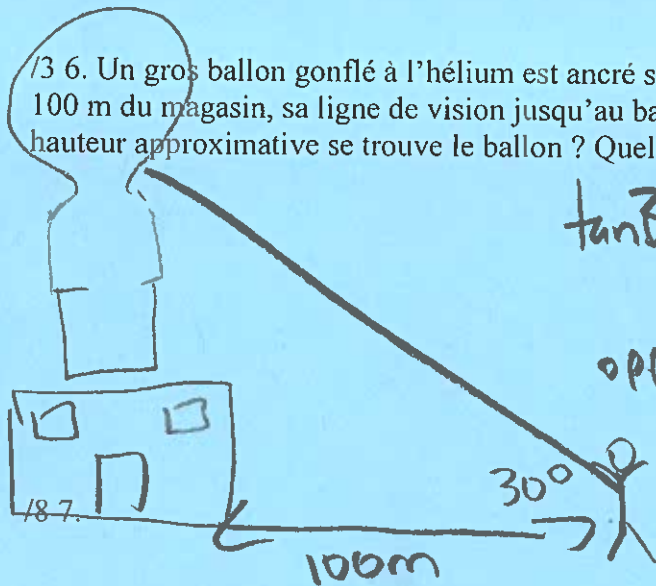 /3 6. Un gros ballon gonflé à l'hélium est ancré s
100 m du magasin, sa ligne de vision jusqu'au ba
hauteur approximative se trouve le ballon ? Quel
tan3
opp
30°
/8 7.
100m